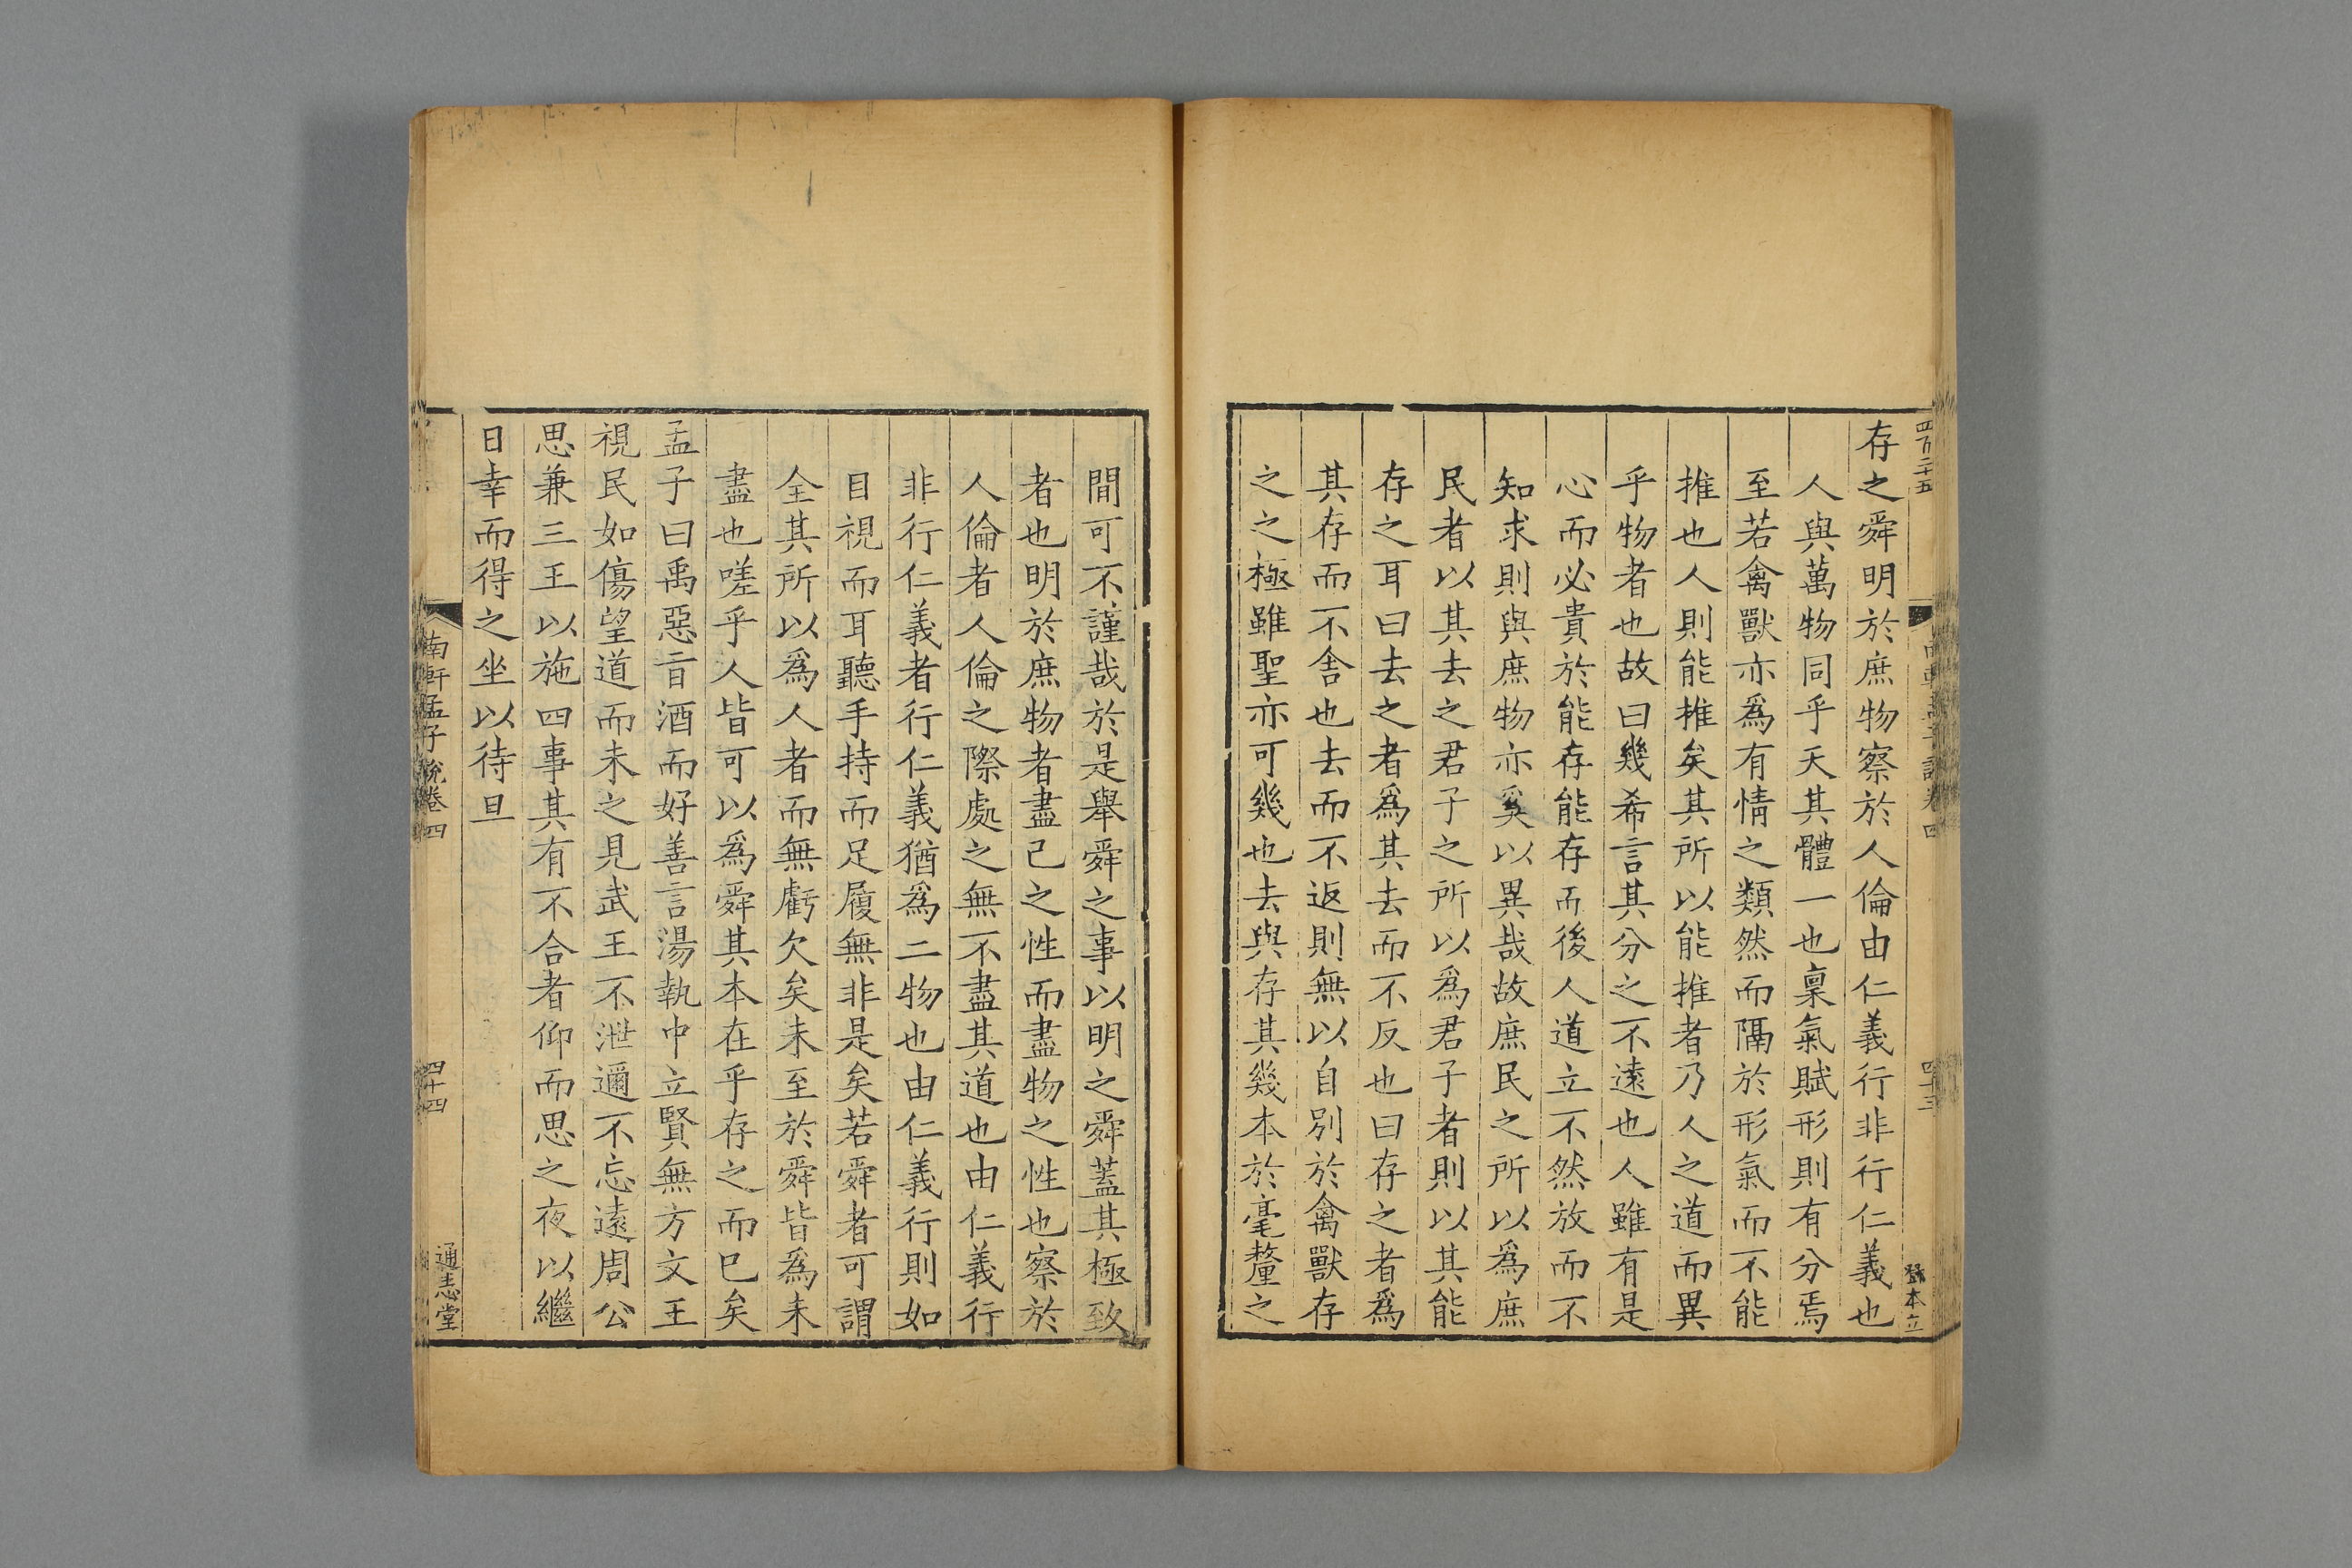 四百二十五
存之舜明於庶物察於人倫由仁義行非行仁義也
人與萬物同乎天其體一也稟氣賦形則有分焉
至若禽獸亦爲有情之類然而隔於形氣而不能
推也人則能推矣其所以能推者乃人之道而異
乎物者也故曰幾希言其分之不遠也人雖有是
心而必貴於能存能存而後人道立不然放而不
知求則與庶物亦奚以異哉故庶民之所以爲庶
民者以其去之君子之所以爲君子者則以其能
存之耳曰去之者爲其去而不反也曰存之者爲
其存而不舍也去而不返則無以自別於禽獸存
之之極雖聖亦可幾也去與存其幾本於毫釐之
間可不謹哉於是舉舜之事以明之舜蓋其極致
者也明於庶物者盡己之性而盡物之性也察於
人倫者人倫之際處之無不盡其道也由仁義行
非行仁義者行仁義猶爲二物也由仁義行則如
目視而耳聽手持而足履無非是矣若舜者可謂
全其所以爲人者而無虧欠矣未至於舜皆爲未
盡也嗟乎人皆可以爲舜其本在乎存之而已矣
孟子曰禹惡旨酒而好善言湯執中立賢無方文王
視民如傷望道而未之見武王不泄邇不忘遠周公
思兼三王以施四事其有不合者仰而思之夜以繼
日幸而得之坐以待旦
南軒孟子說卷四
四十四
通志堂